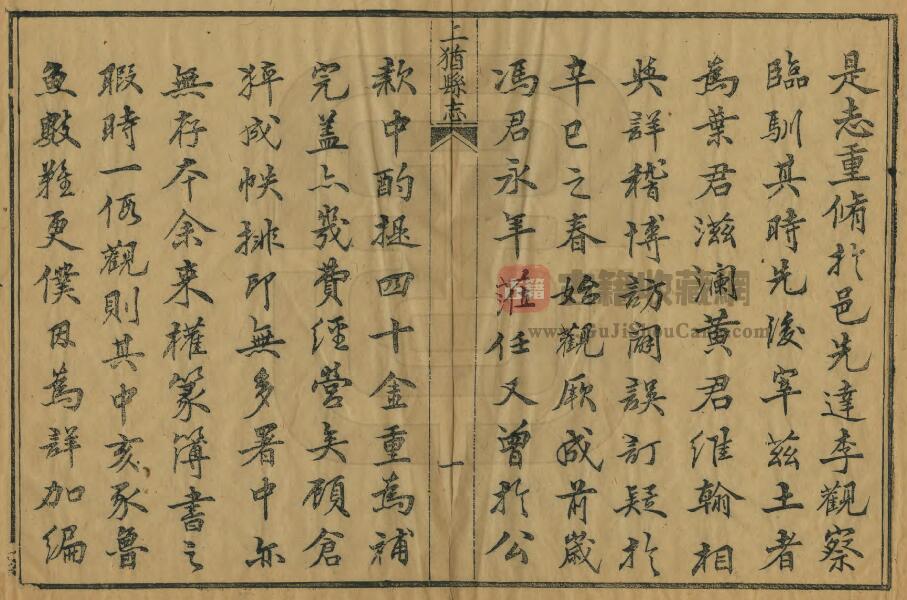 是志重脩於邑先達李觀察
臨馴其時先後宰茲土者
爲葉君滋瀾黃君維翰相
與詳稽博訪闕誤訂疑於
辛巳之春始觀厥成前歲
馮君永年蒞任又曾於公
上猶縣志
一
款中酌提四十金重爲補
完蓋亦幾費經營矣顧倉
猝成帙排印無多署中亦
無存本余來權篆簿書之
暇時一偶觀則其中亥豕魯
魚數難更僕因爲詳加編
古籍收藏網
www.GuJiShouCang.com